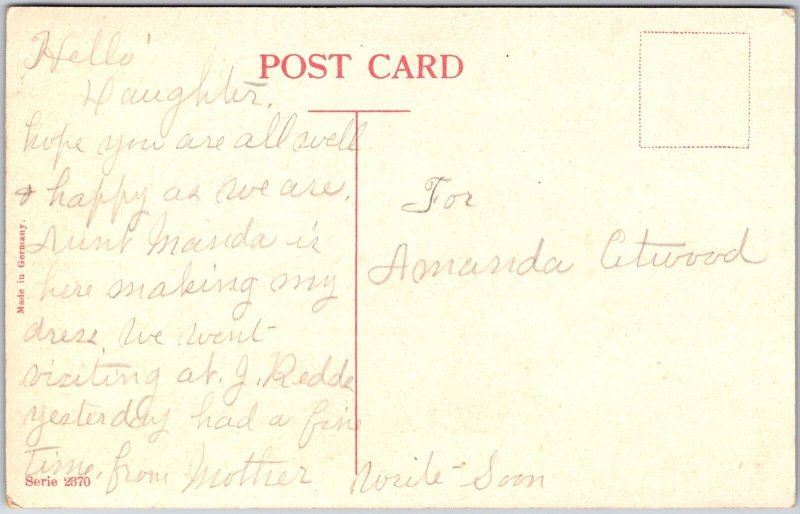 POST CARD
Hello
Daughter,
hope you are all well
& happy as we are.
Aunt Manda is
here making my
dress. We went
visiting at J. Redds
yesterday had a fine
time. from Mother
Write Soon
For
Amanda Atwood
Made in Germany.
Serie 2370